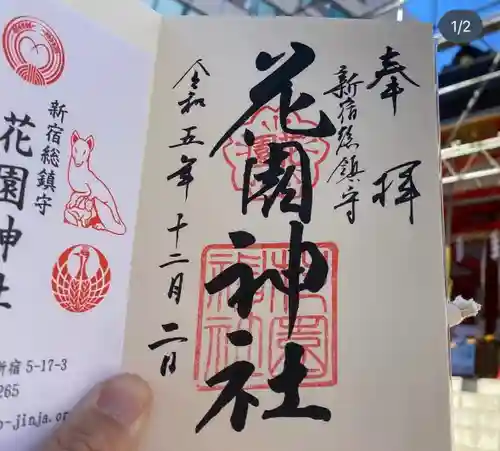 1/2
奉拝
新宿総鎮守
花園神社
令和五年十二月二日
新宿総鎮守
花園神社
新宿 5-17-3
265
o-jinja.or